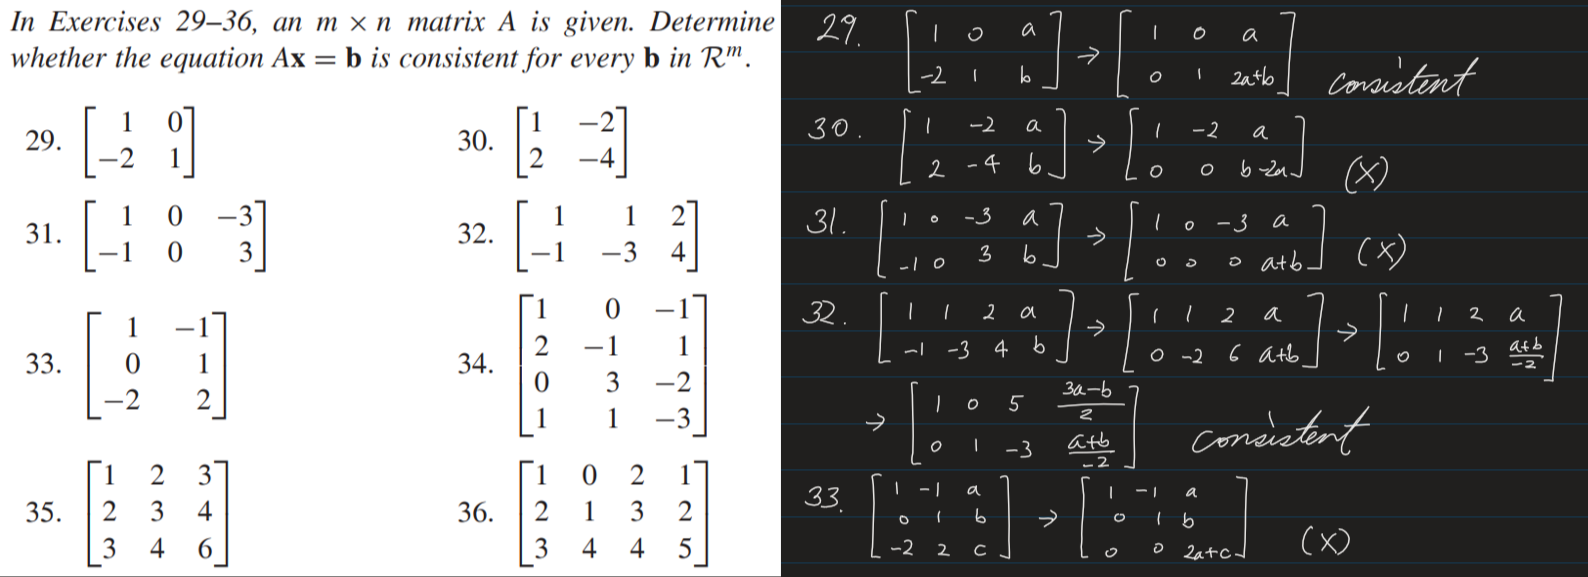 In Exercises 29–36, an m × n matrix A is given. Determine
whether the equation Ax = b is consistent for every b in R^m.
29. [1 0
−2 1]
30. [1 −2
2 −4]
31. [1 0 −3
−1 0 3]
32. [1 1 2
−1 −3 4]
33. [1 −1
0 1
−2 2]
34. [1 0 −1
2 −1 1
0 3 −2
1 1 −3]
35. [1 2 3
2 3 4
3 4 6]
36. [1 0 2 1
2 1 3 2
3 4 4 5]
29. [1 0 a
-2 1 b] → [1 0 a
0 1 2a+b] consistent
30. [1 -2 a
2 -4 b] → [1 -2 a
0 0 b-2a] (X)
31. [1 0 -3 a
-1 0 3 b] → [1 0 -3 a
0 0 0 a+b] (X)
32. [1 1 2 a
-1 -3 4 b] → [1 1 2 a
0 -2 6 a+b] → [1 1 2 a
0 1 -3 a+b/-2]
→ [1 0 5 3a-b/2
0 1 -3 a+b/-2] consistent
33. [1 -1 a
0 1 b
-2 2 c] → [1 -1 a
0 1 b
0 0 2a+c] (X)